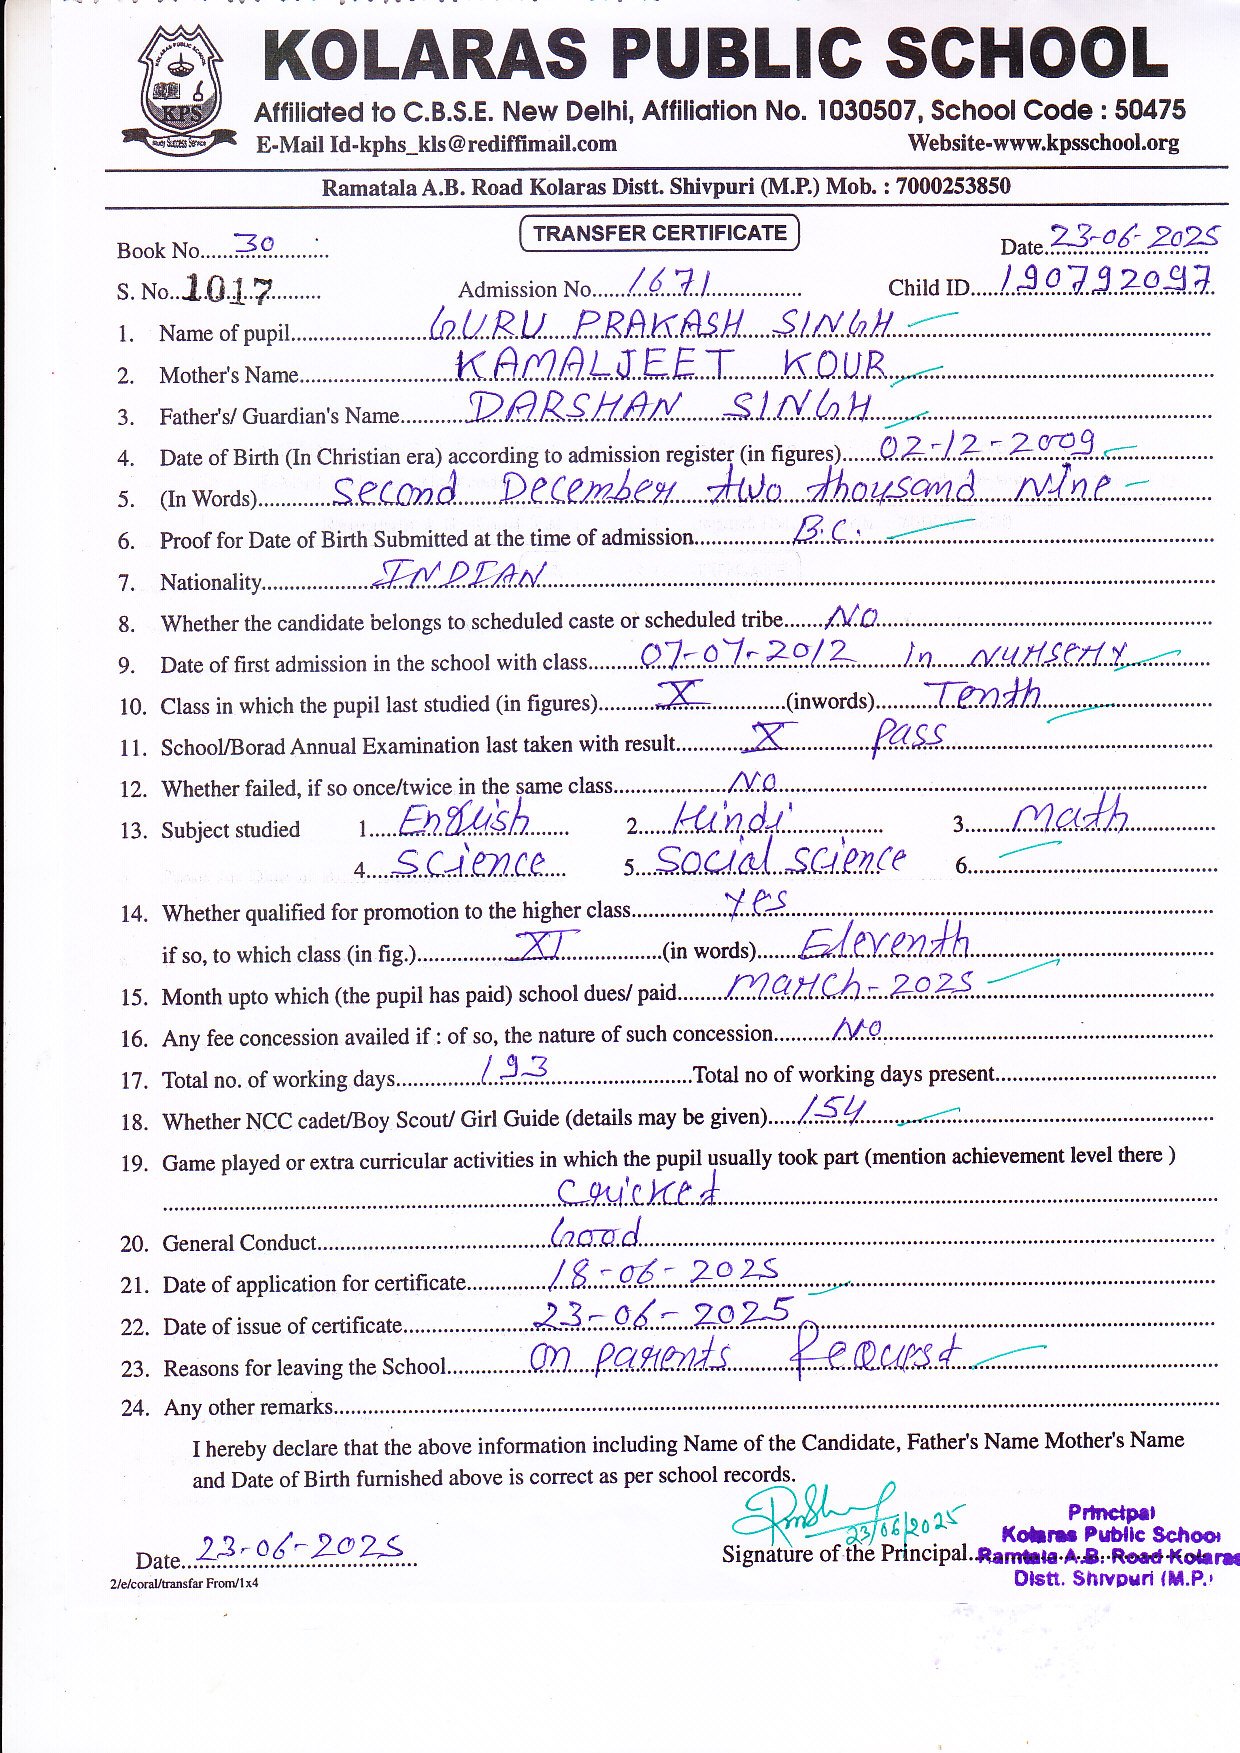 KOLARAS PUBLIC SCHOOL
KPS
Affiliated to C.B.S.E. New Delhi, Affiliation No. 1030507, School Code : 50475
E-Mail Id-kphs_kls@rediffimail.com Website-www.kpsschool.org
Ramatala A.B. Road Kolaras Distt. Shivpuri (M.P.) Mob. : 7000253850
TRANSFER CERTIFICATE
Book No. 30 Date 23-06-2025
S. No. 1017 Admission No. 1671 Child ID 190792097
1. Name of pupil GURU PRAKASH SINGH
2. Mother's Name KAMALJEET KOUR
3. Father's/ Guardian's Name DARSHAN SINGH
4. Date of Birth (In Christian era) according to admission register (in figures) 02-12-2009
5. (In Words) Second December Two Thousand Nine
6. Proof for Date of Birth Submitted at the time of admission B.C.
7. Nationality INDIAN
8. Whether the candidate belongs to scheduled caste or scheduled tribe NO
9. Date of first admission in the school with class 07-07-2012 In Nursery
10. Class in which the pupil last studied (in figures) X (inwords) Tenth
11. School/Borad Annual Examination last taken with result X Pass
12. Whether failed, if so once/twice in the same class NO
13. Subject studied 1. English 2. Hindi 3. Math
4. Science 5. Social Science 6.
14. Whether qualified for promotion to the higher class Yes
if so, to which class (in fig.) XI (in words) Eleventh
15. Month upto which (the pupil has paid) school dues/ paid March-2025
16. Any fee concession availed if : of so, the nature of such concession NO
17. Total no. of working days 193 Total no of working days present
18. Whether NCC cadet/Boy Scout/ Girl Guide (details may be given) 154
19. Game played or extra curricular activities in which the pupil usually took part (mention achievement level there )
Cricket
20. General Conduct Good
21. Date of application for certificate 18-06-2025
22. Date of issue of certificate 23-06-2025
23. Reasons for leaving the School On Parents Request
24. Any other remarks
I hereby declare that the above information including Name of the Candidate, Father's Name Mother's Name
and Date of Birth furnished above is correct as per school records.
23/06/2025
Principal
Kolaras Public School
Date 23-06-2025 Signature of the Principal Ramtala A.B. Road Kolaras
Distt. Shivpuri (M.P.)
2/e/coral/transfar From/1x4